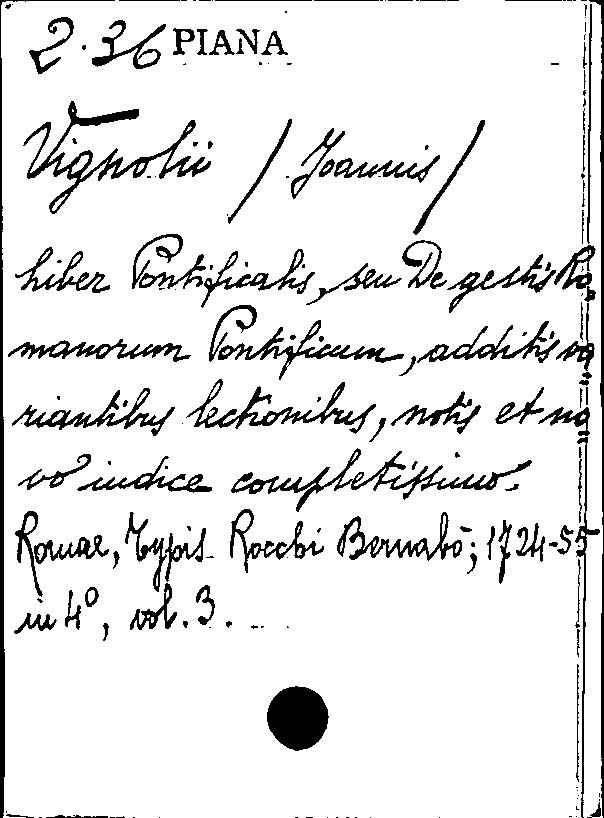 2.36 PIANA
Vignolii / Joannis /
Liber Pontificalis, seu De gestis Ro=
manorum Pontificum, additis va=
riantibus lectionibus, notis et no=
vo indice completissimo.
Romae, Typis Rocchi Bernabò; 1724-55
in 4º, vol. 3.